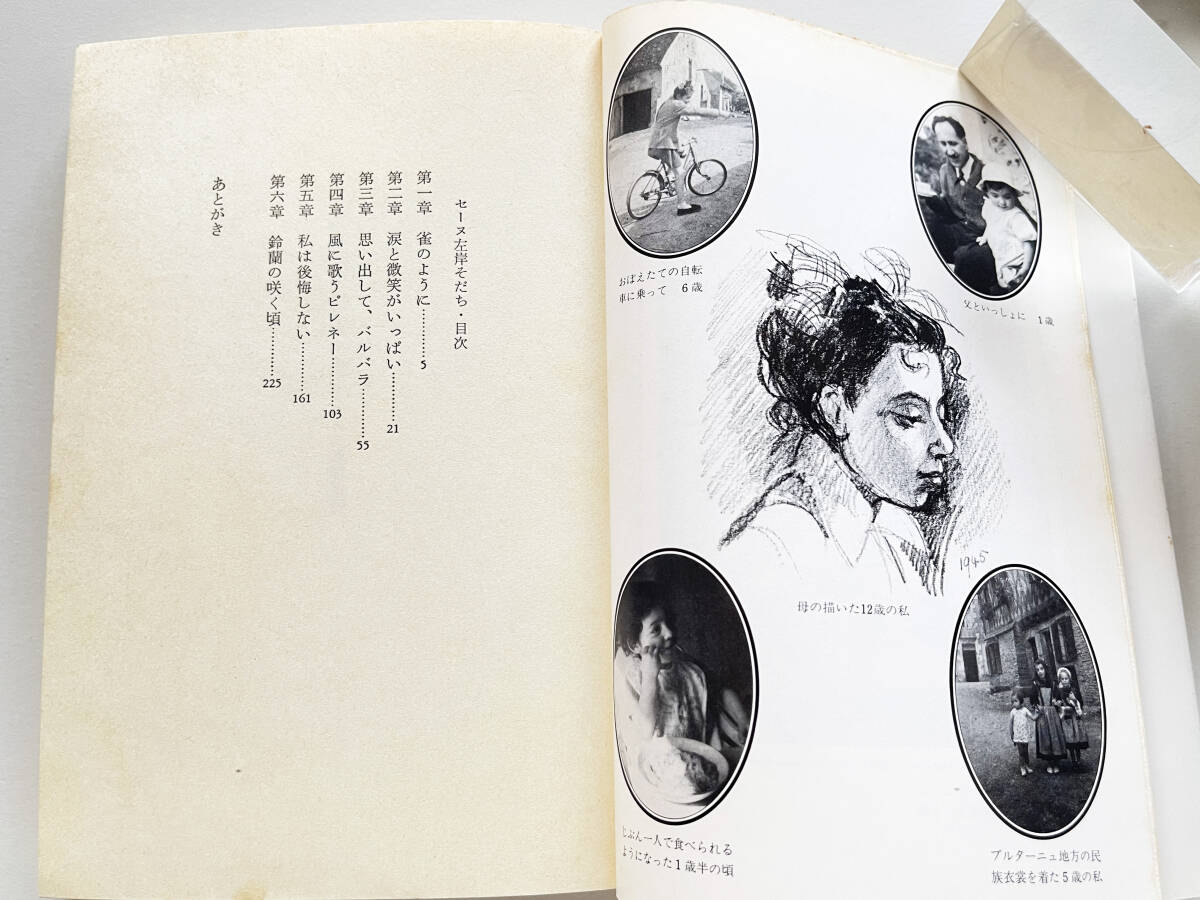 セーヌ左岸そだち・目次
第一章　雀のように…………5
第二章　涙と微笑がいっぱい…………21
第三章　思い出して、バルバラ…………55
第四章　風に歌うピレネー…………103
第五章　私は後悔しない…………161
第六章　鈴蘭の咲く頃…………225
あとがき
おぼえたての自転
車に乗って　6歳
父といっしょに　1歳
1945
母の描いた12歳の私
じぶん一人で食べられる
ようになった1歳半の頃
ブルターニュ地方の民
族衣裳を着た5歳の私